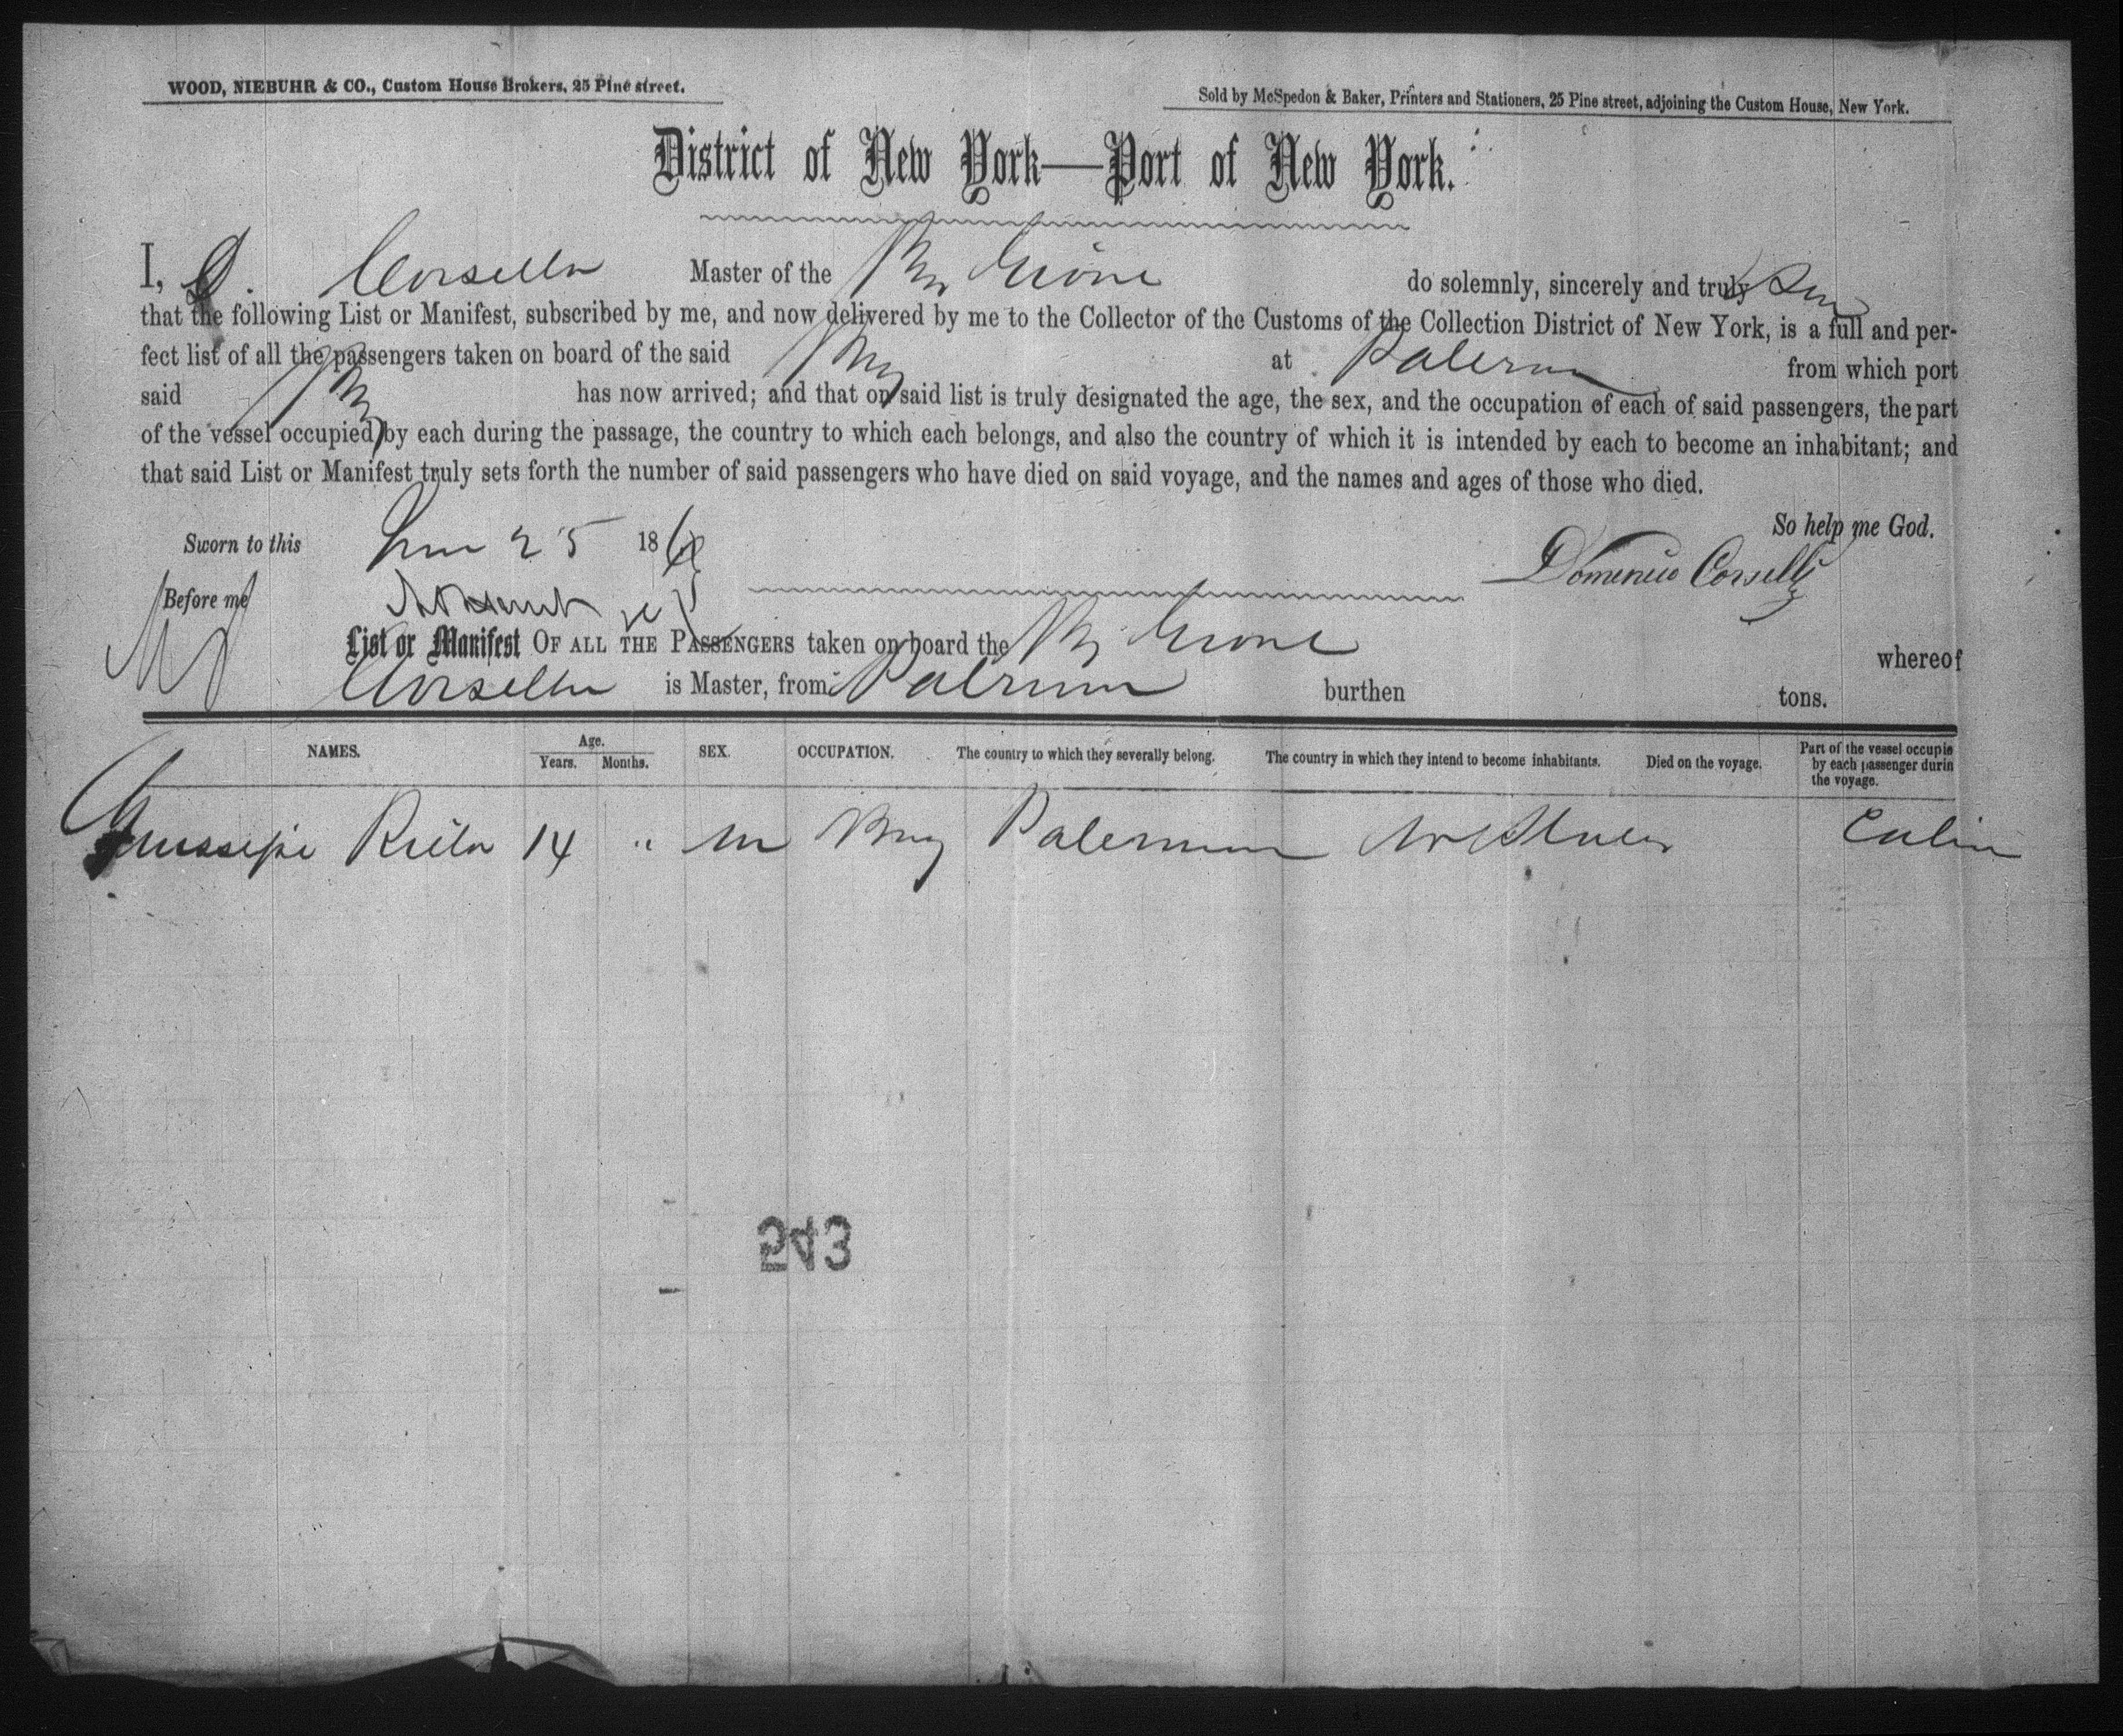 WOOD, NIEBUHR & CO., Custom House Brokers, 25 Pine street.
Sold by McSpedon & Baker, Printers and Stationers, 25 Pine street, adjoining the Custom House, New York.
District of New York—Port of New York.
I, D. Corsella Master of the do solemnly, sincerely and truly
that the following List or Manifest, subscribed by me, and now delivered by me to the Collector of the Customs of the Collection District of New York, is a full and per-
fect list of all the passengers taken on board of the said at Palermo from which port
said has now arrived; and that on said list is truly designated the age, the sex, and the occupation of each of said passengers, the part
of the vessel occupied by each during the passage, the country to which each belongs, and also the country of which it is intended by each to become an inhabitant; and
that said List or Manifest truly sets forth the number of said passengers who have died on said voyage, and the names and ages of those who died.
So help me God.
Sworn to this 25 186
Domenico Corselli
Before me
List or Manifest OF ALL THE PASSENGERS taken on board the whereof
Corsella is Master, from Palermo burthen tons.
NAMES. Age. Years. Months. SEX. OCCUPATION. The country to which they severally belong. The country in which they intend to become inhabitants. Died on the voyage. Part of the vessel occupie by each passenger durin the voyage.
14 " M Boy Palermo Cabin
243